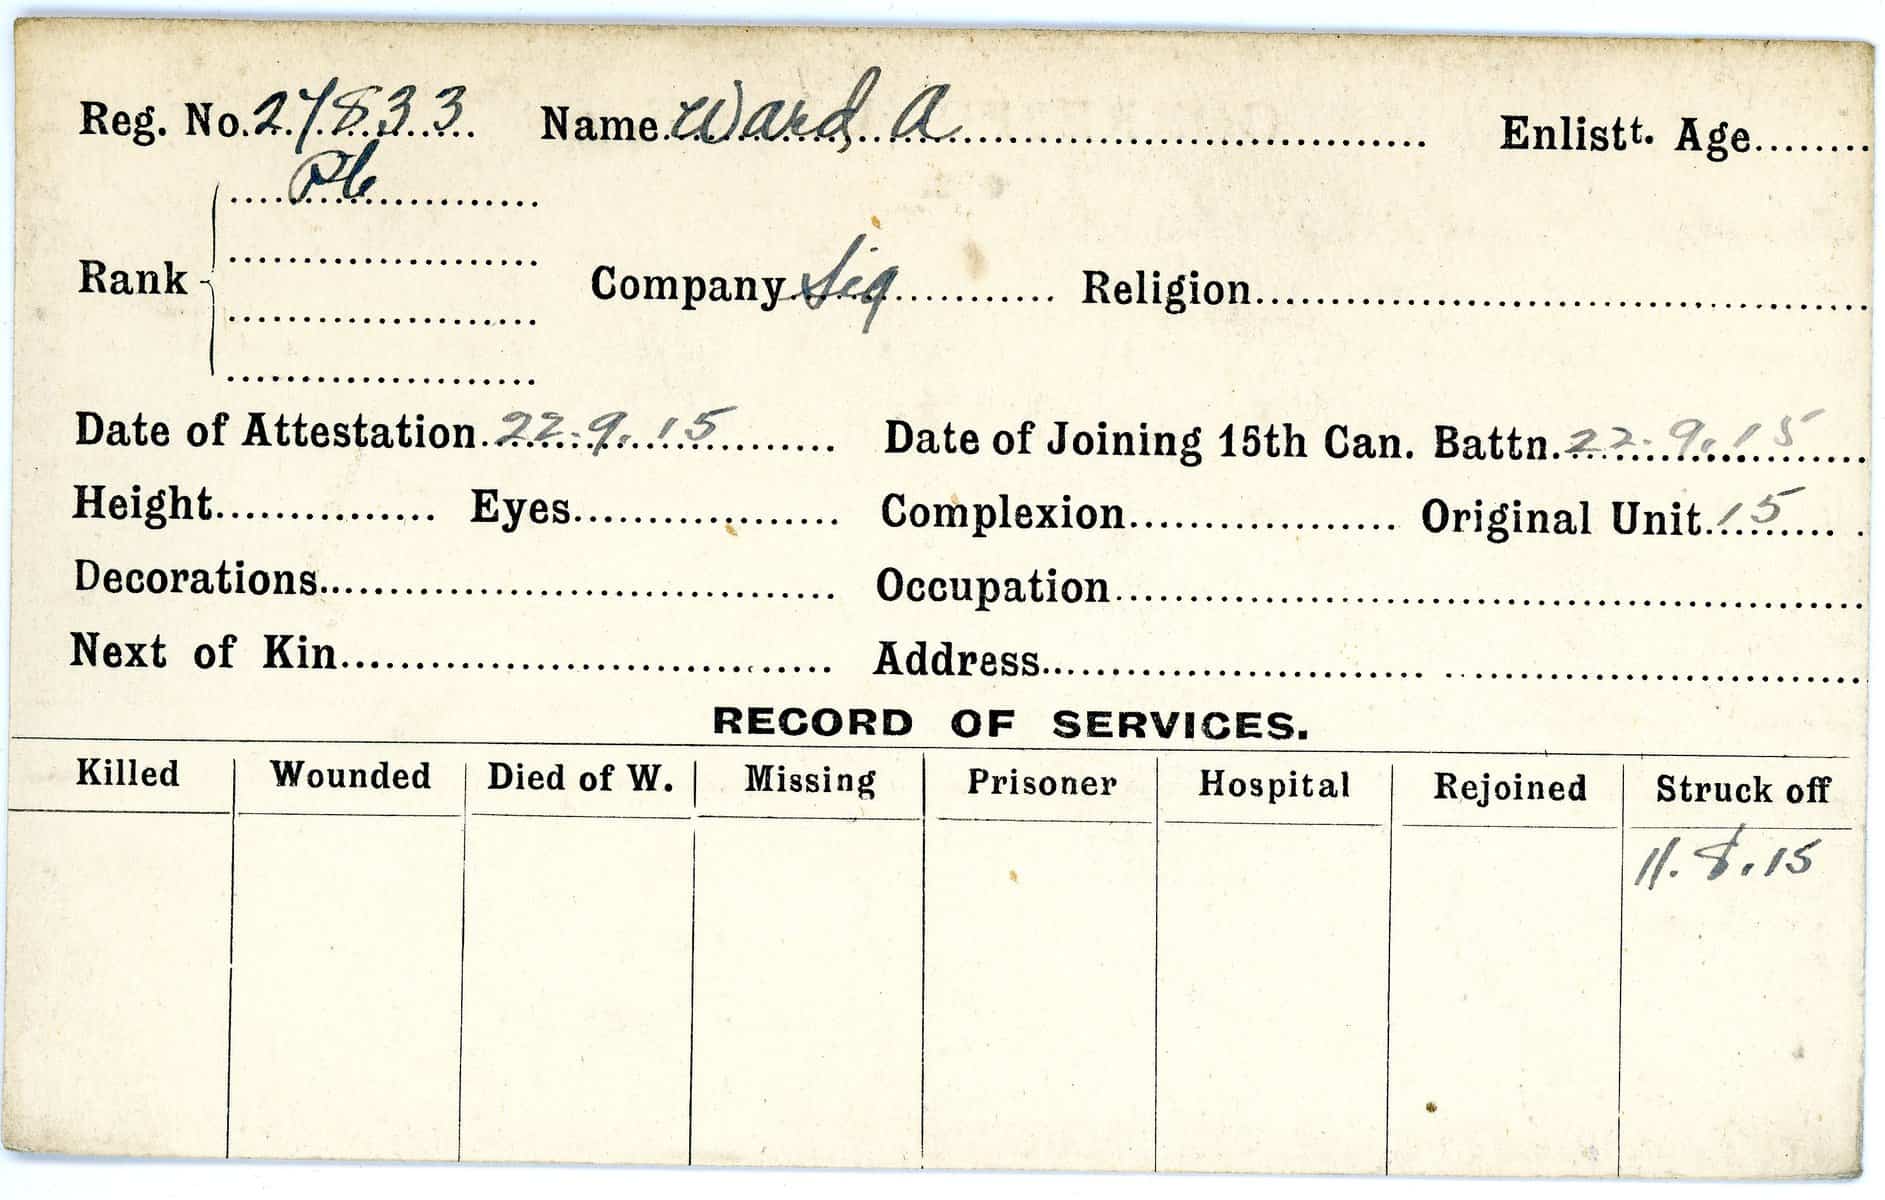 Reg. No. 27833 Name Ward, A Enlistt. Age
Pte
Rank Company Sig Religion
Date of Attestation 22.9.15 Date of Joining 15th Can. Battn. 22.9.15
Height Eyes Complexion Original Unit 15
Decorations Occupation
Next of Kin Address
RECORD OF SERVICES.
Killed Wounded Died of W. Missing Prisoner Hospital Rejoined Struck off
11.8.15